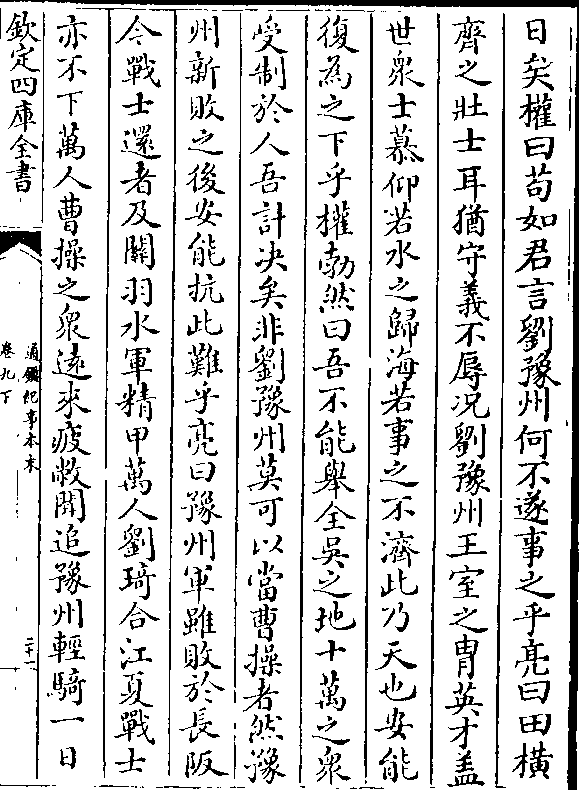 日矣權曰苟如君言劉豫州何不遂事之乎亮曰田橫
齊之壯士耳猶守義不辱况劉豫州王室之胄英才盖
世衆士慕仰若水之歸海若事之不濟此乃天也安能
復為之下乎權勃然曰吾不能舉全吳之地十萬之衆
受制於人吾計决矣非劉豫州莫可以當曹操者然豫
州新敗之後安能抗此難乎亮曰豫州軍雖敗於長阪
今戰士還者及關羽水軍精甲萬人劉琦合江夏戰士
亦不下萬人曹操之衆遠來疲敝聞追豫州輕騎一日
欽定四庫全書
通鑑紀事本末
卷九下
二十一